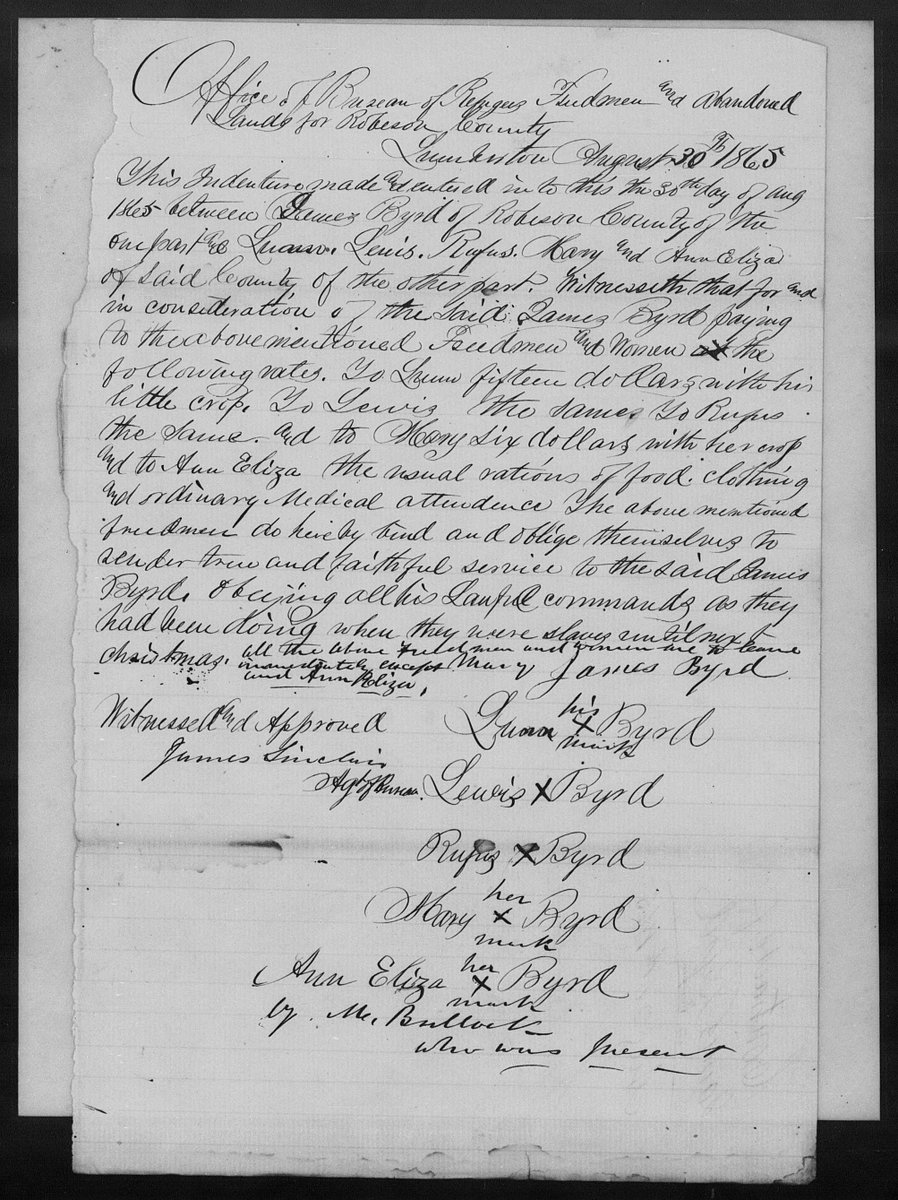 Office of Bureau of Refugees Freedmen and Abandoned
Lands for Robeson County
Lumberton August 30th 1865
This Indenture made and entered in to this the 30th day of aug
1865 between James Byrd of Robeson County of the
one part and Lunn. Lewis. Rufus. Mary and Ann Eliza
of said County of the other part. Witnesseth that for and
in consideration of the said James Byrd paying
to the above mentioned Freedmen and Women at the
following rates. To Lunn fifteen dollars with his
little crop. To Lewis the same. To Rufus
the same. and to Mary six dollars with her crop
and to Ann Eliza the usual rations of food. clothing
and ordinary Medical attendence The above mentioned
freedmen do hereby bind and oblige themselves to
render true and faithful service to the said James
Byrd. Obeying all his Lawful commands as they
had been doing when they were slaves until next
christmas. all the above freedmen and women are to leave
immediately except Mary
and Ann Eliza.
James Byrd
Witnessed and Approved
James Sinclair
Agt of Bureau.
Lunn his X mark Byrd
Lewis X Byrd
Rufus X Byrd
Mary her X mark Byrd
Ann Eliza her X mark Byrd
by. Mc. Bullock
who was present